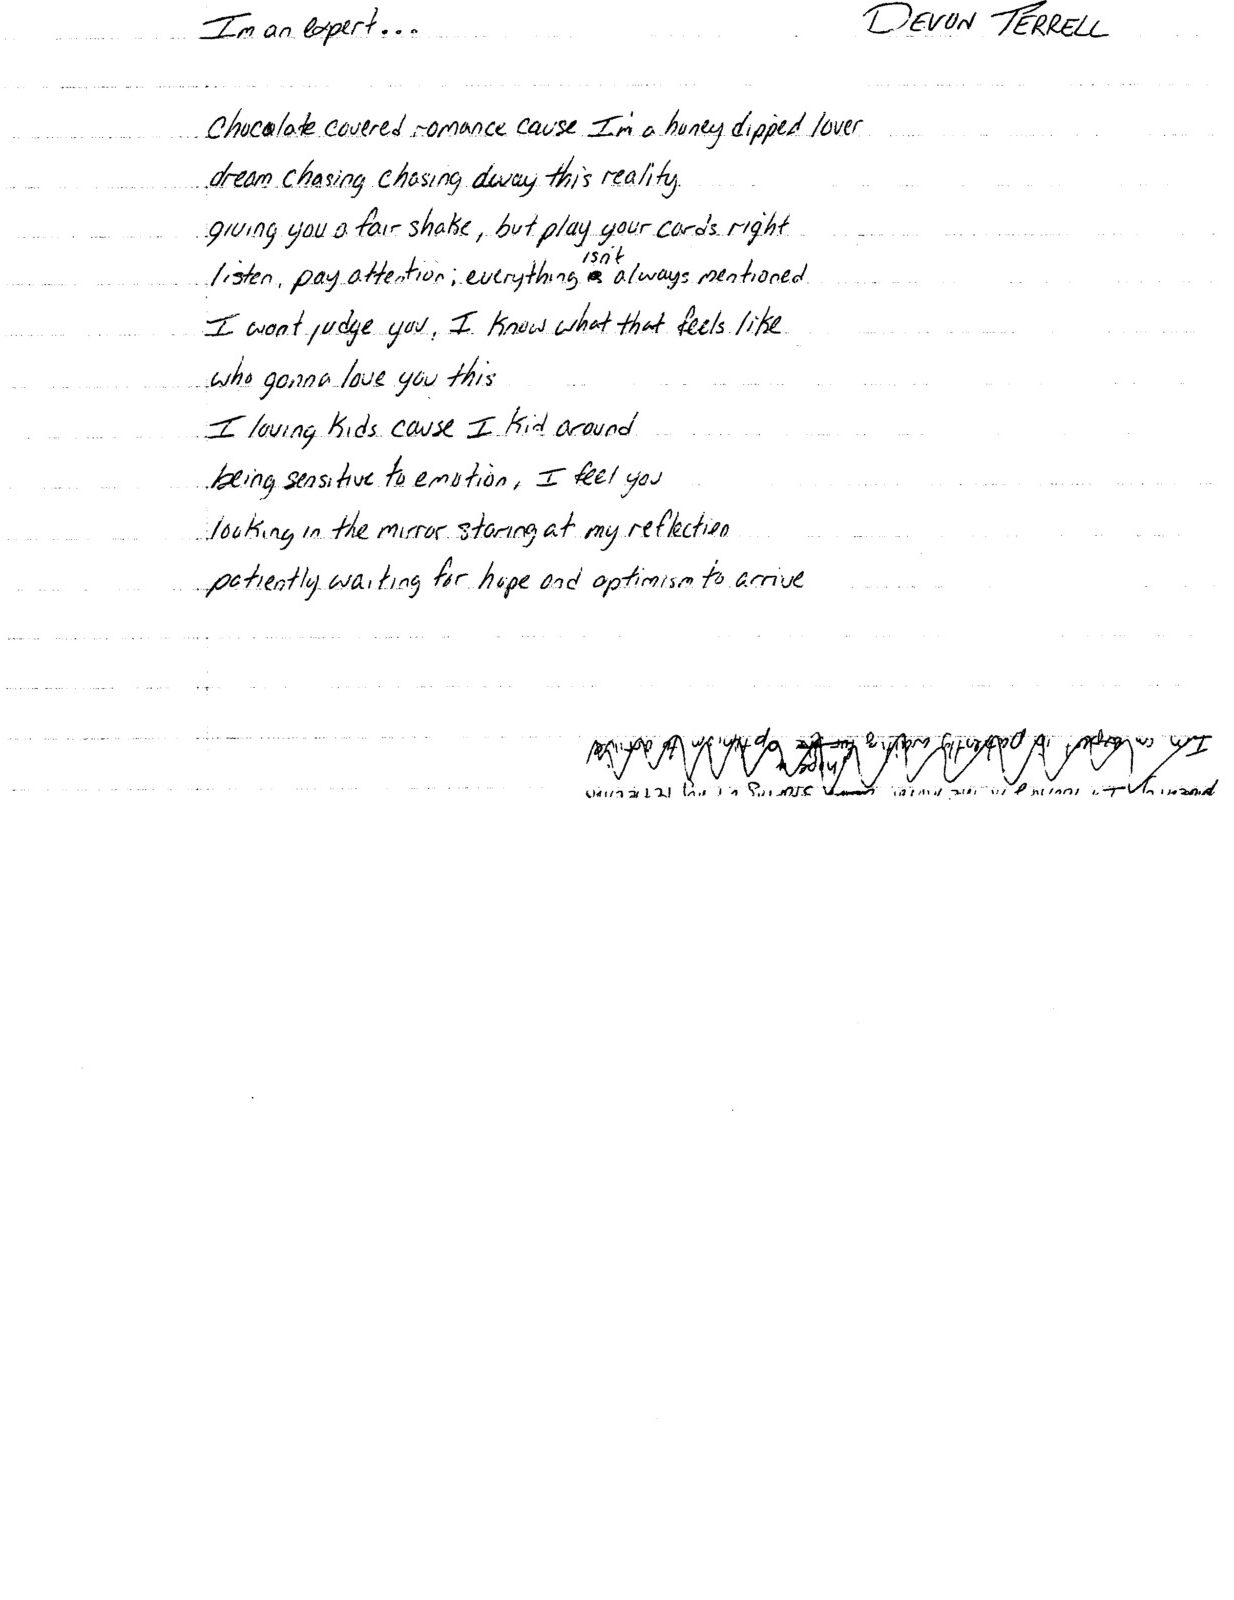 Im an expert... DEVON TERRELL
Chocolate covered romance cause I'm a honey dipped lover
dream chasing chasing away this reality.
giving you a fair shake, but play your cards right
listen, pay attention; everything isn't always mentioned
I wont judge you, I know what that feels like
who gonna love you this
I loving kids cause I kid around
being sensitive to emotion, I feel you
looking in the mirror staring at my reflection
patiently waiting for hope and optimism to arrive
Im an expert patiently waiting for optimism to